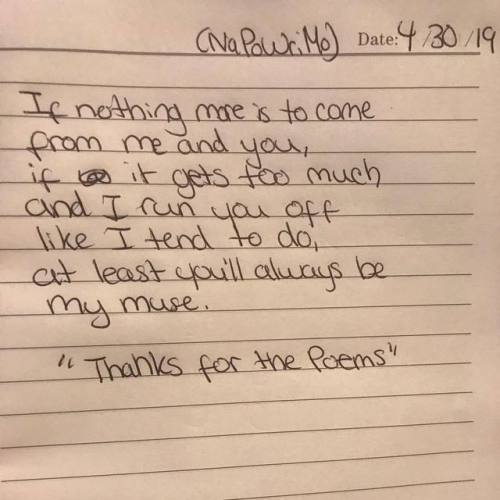 (NaPoWriMo) Date: 4/30/19
If nothing more is to come
from me and you,
if it gets too much
and I run you off
like I tend to do,
at least you'll always be
my muse.
"Thanks for the Poems"